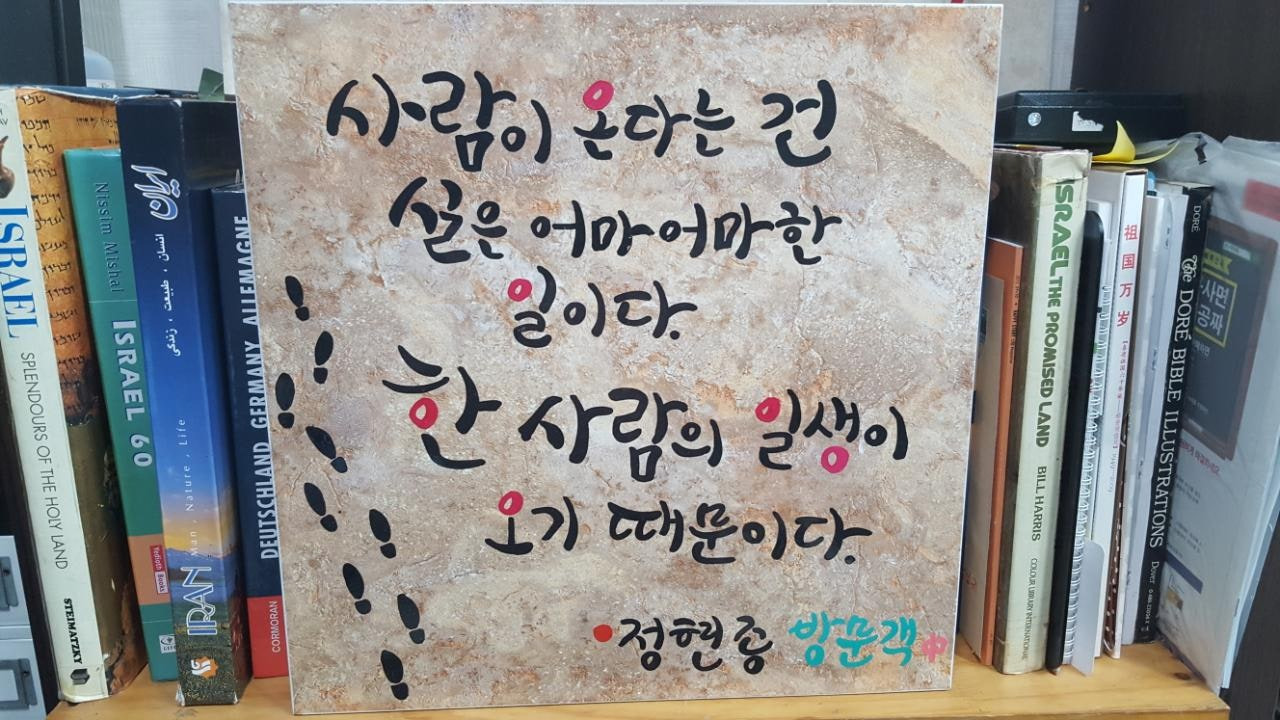 사람이 온다는 건
실은 어마어마한
일이다.
한 사람의 일생이
오기 때문이다.
정현종 방문객 中
ISRAEL SPLENDOURS OF THE HOLY LAND STEIMATZKY
Nissim Mishal ISRAEL 60
Yedioth Books
ایران
انسان ، طبیعت ، زندگی
IRAN Man , Nature , Life
DEUTSCHLAND GERMANY ALLEMAGNE
CORMORAN
ISRAEL THE PROMISED LAND BILL HARRIS COLOUR LIBRARY INTERNATIONAL
祖国万岁
DORÉ The DORÉ BIBLE ILLUSTRATIONS Dover
사면
공짜